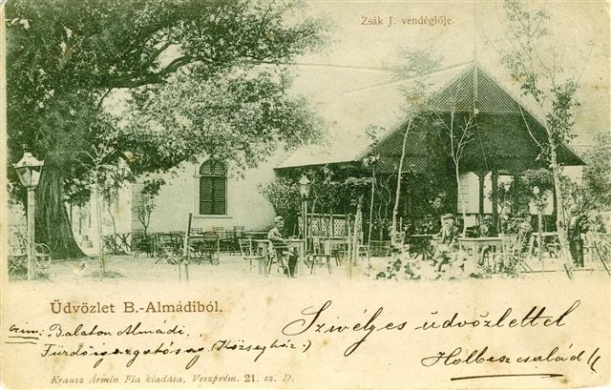 Zsák J. vendéglője.
Üdvözlet B.-Almádiból.
Czím: Balaton Almádi,
Fürdőigazgatóság (Községház:)
Szívélyes üdvözlettel
család
Krausz Ármin Fia kiadása, Veszprém. 21. sz. D.